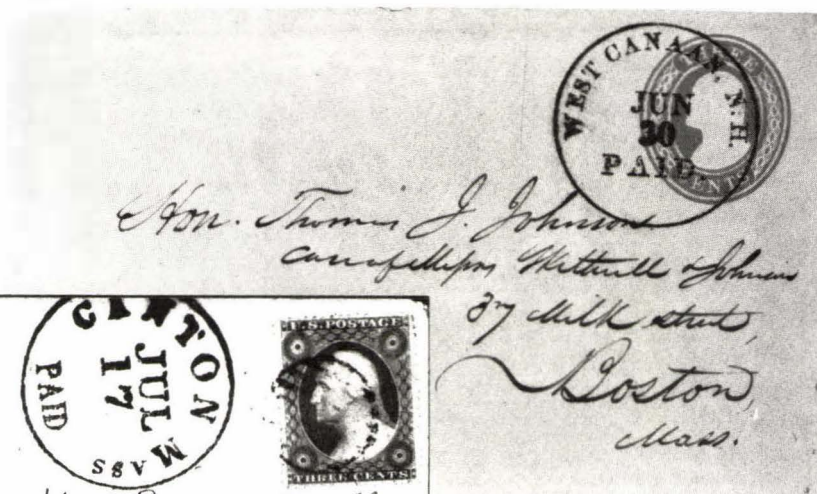 WEST CANAAN, N.H.
JUN
30
PAID.
THREE
CENTS
Hon. Thomas J. Johnson
care of Messrs & Johnson
37 Milk street,
Boston,
Mass.
CANTON MASS
JUL
17
PAID
U.S. POSTAGE
THREE CENTS